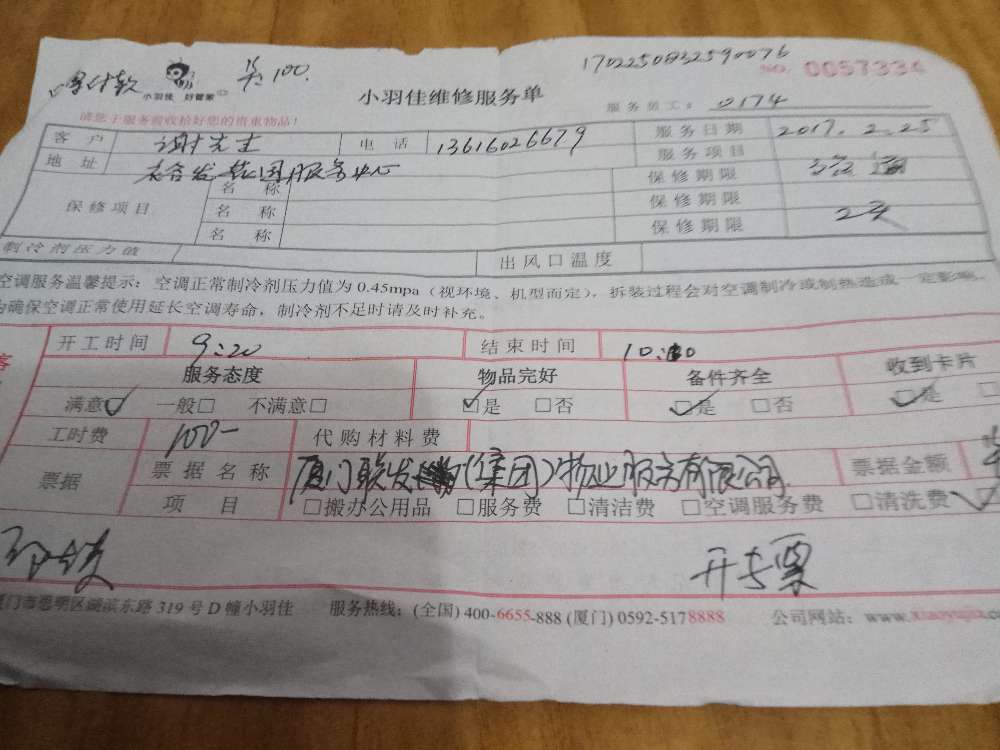 1702250832590076
吴100.
小羽佳 好管家
小羽佳维修服务单
NO. 0057334
请您于服务前收拾好您的贵重物品！
服务员工：0174
客户 谢先生 电话 13616026679 服务日期 2017.2.25
地址 服务中心 服务项目
保修项目 名称 保修期限
名称 保修期限
名称 保修期限
制冷剂压力值 出风口温度
空调服务温馨提示：空调正常制冷剂压力值为 0.45mpa（视环境、机型而定），拆装过程会对空调制冷或制热造成一定影响。
为确保空调正常使用延长空调寿命，制冷剂不足时请及时补充。
开工时间 9:20 结束时间
服务态度 物品完好 备件齐全 收到卡片
满意☑ 一般□ 不满意□ ☑是 □否 ☑是 □否 ☑是
工时费 100- 代购材料费
票据 票据名称 厦门联发(集团)物业服务有限公司 票据金额
项目 □搬办公用品 □服务费 □清洁费 □空调服务费 □清洗费
开专票
厦门市思明区湖滨东路 319 号 D 幢小羽佳 服务热线：(全国) 400-6655-888 (厦门) 0592-5178888 公司网站：www.xiaoyujia.co